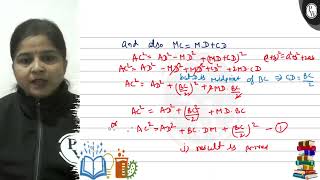 and also MC = MD + CD
AC² = AD² - MD² + (MD+CD)² (a+b)² = a²+b²+2ab
AC² = AD² - MD² + MD² + CD² + 2MD·CD
but D is midpoint of BC ⇒ CD = BC/2
AC² = AD² + (BC/2)² + 2MD·BC/2
AC² = AD² + (BC/2)² + MD·BC
or ∴ AC² = AD² + BC·DM + (BC/2)² - ①
i) result is proved